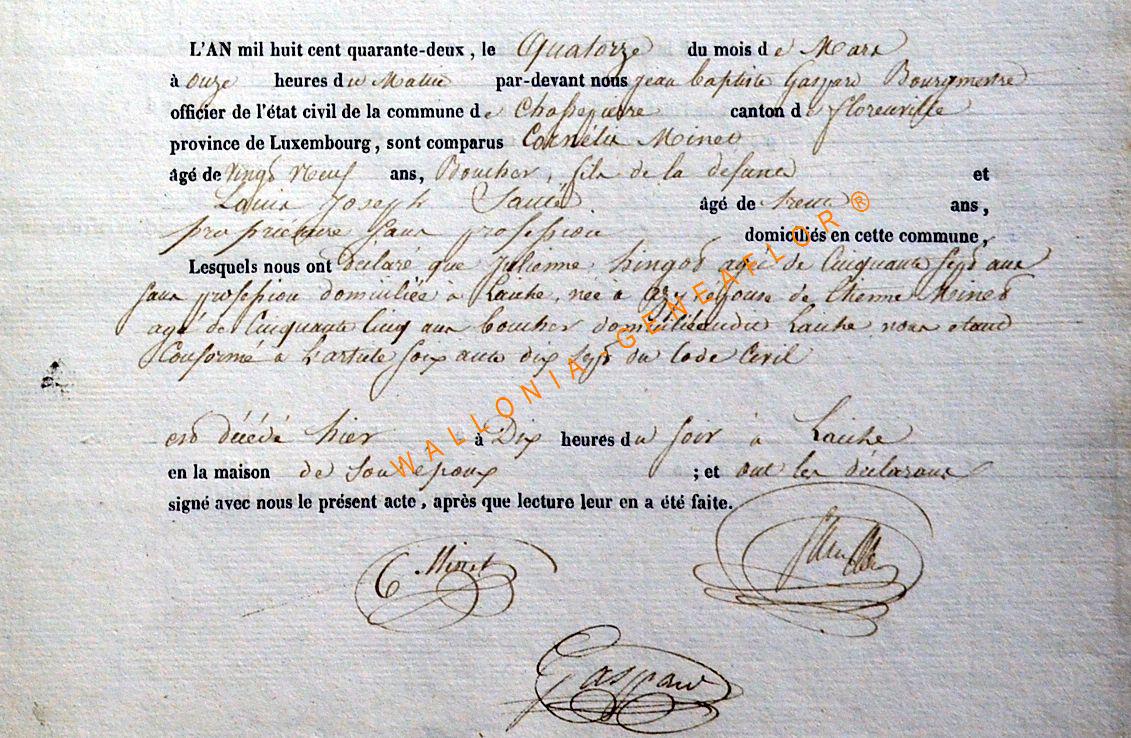 L'AN mil huit cent quarante-deux, le Quatorze du mois de Mars
à onze heures du Matin par-devant nous jean baptiste Gaspard Bourgmestre
officier de l'état civil de la commune de Chassepierre canton de florenville
province de Luxembourg, sont comparus Cornélis Minet
âgé de vingt neuf ans, Boucher, fils de la defunte et
Louis Joseph âgé de ans,
propriétaire sans profession domiciliés en cette commune,
Lesquels nous ont déclaré que Julienne hingot agée de Cinquante sept ans
sans profession domiciliée à Laiche, née à epouse de Etienne Minet
agé de Cinquante Cinq ans boucher domicilié audit Laiche nous etant
Conformé à L'article soixante dix sept du Code Civil
est décédé hier à Dix heures du soir à Laiche
en la maison de son epoux ; et ont les déclarans
signé avec nous le présent acte, après que lecture leur en a été faite.
C Minet
Gaspard
WALLONIA-GENEAFLOR®